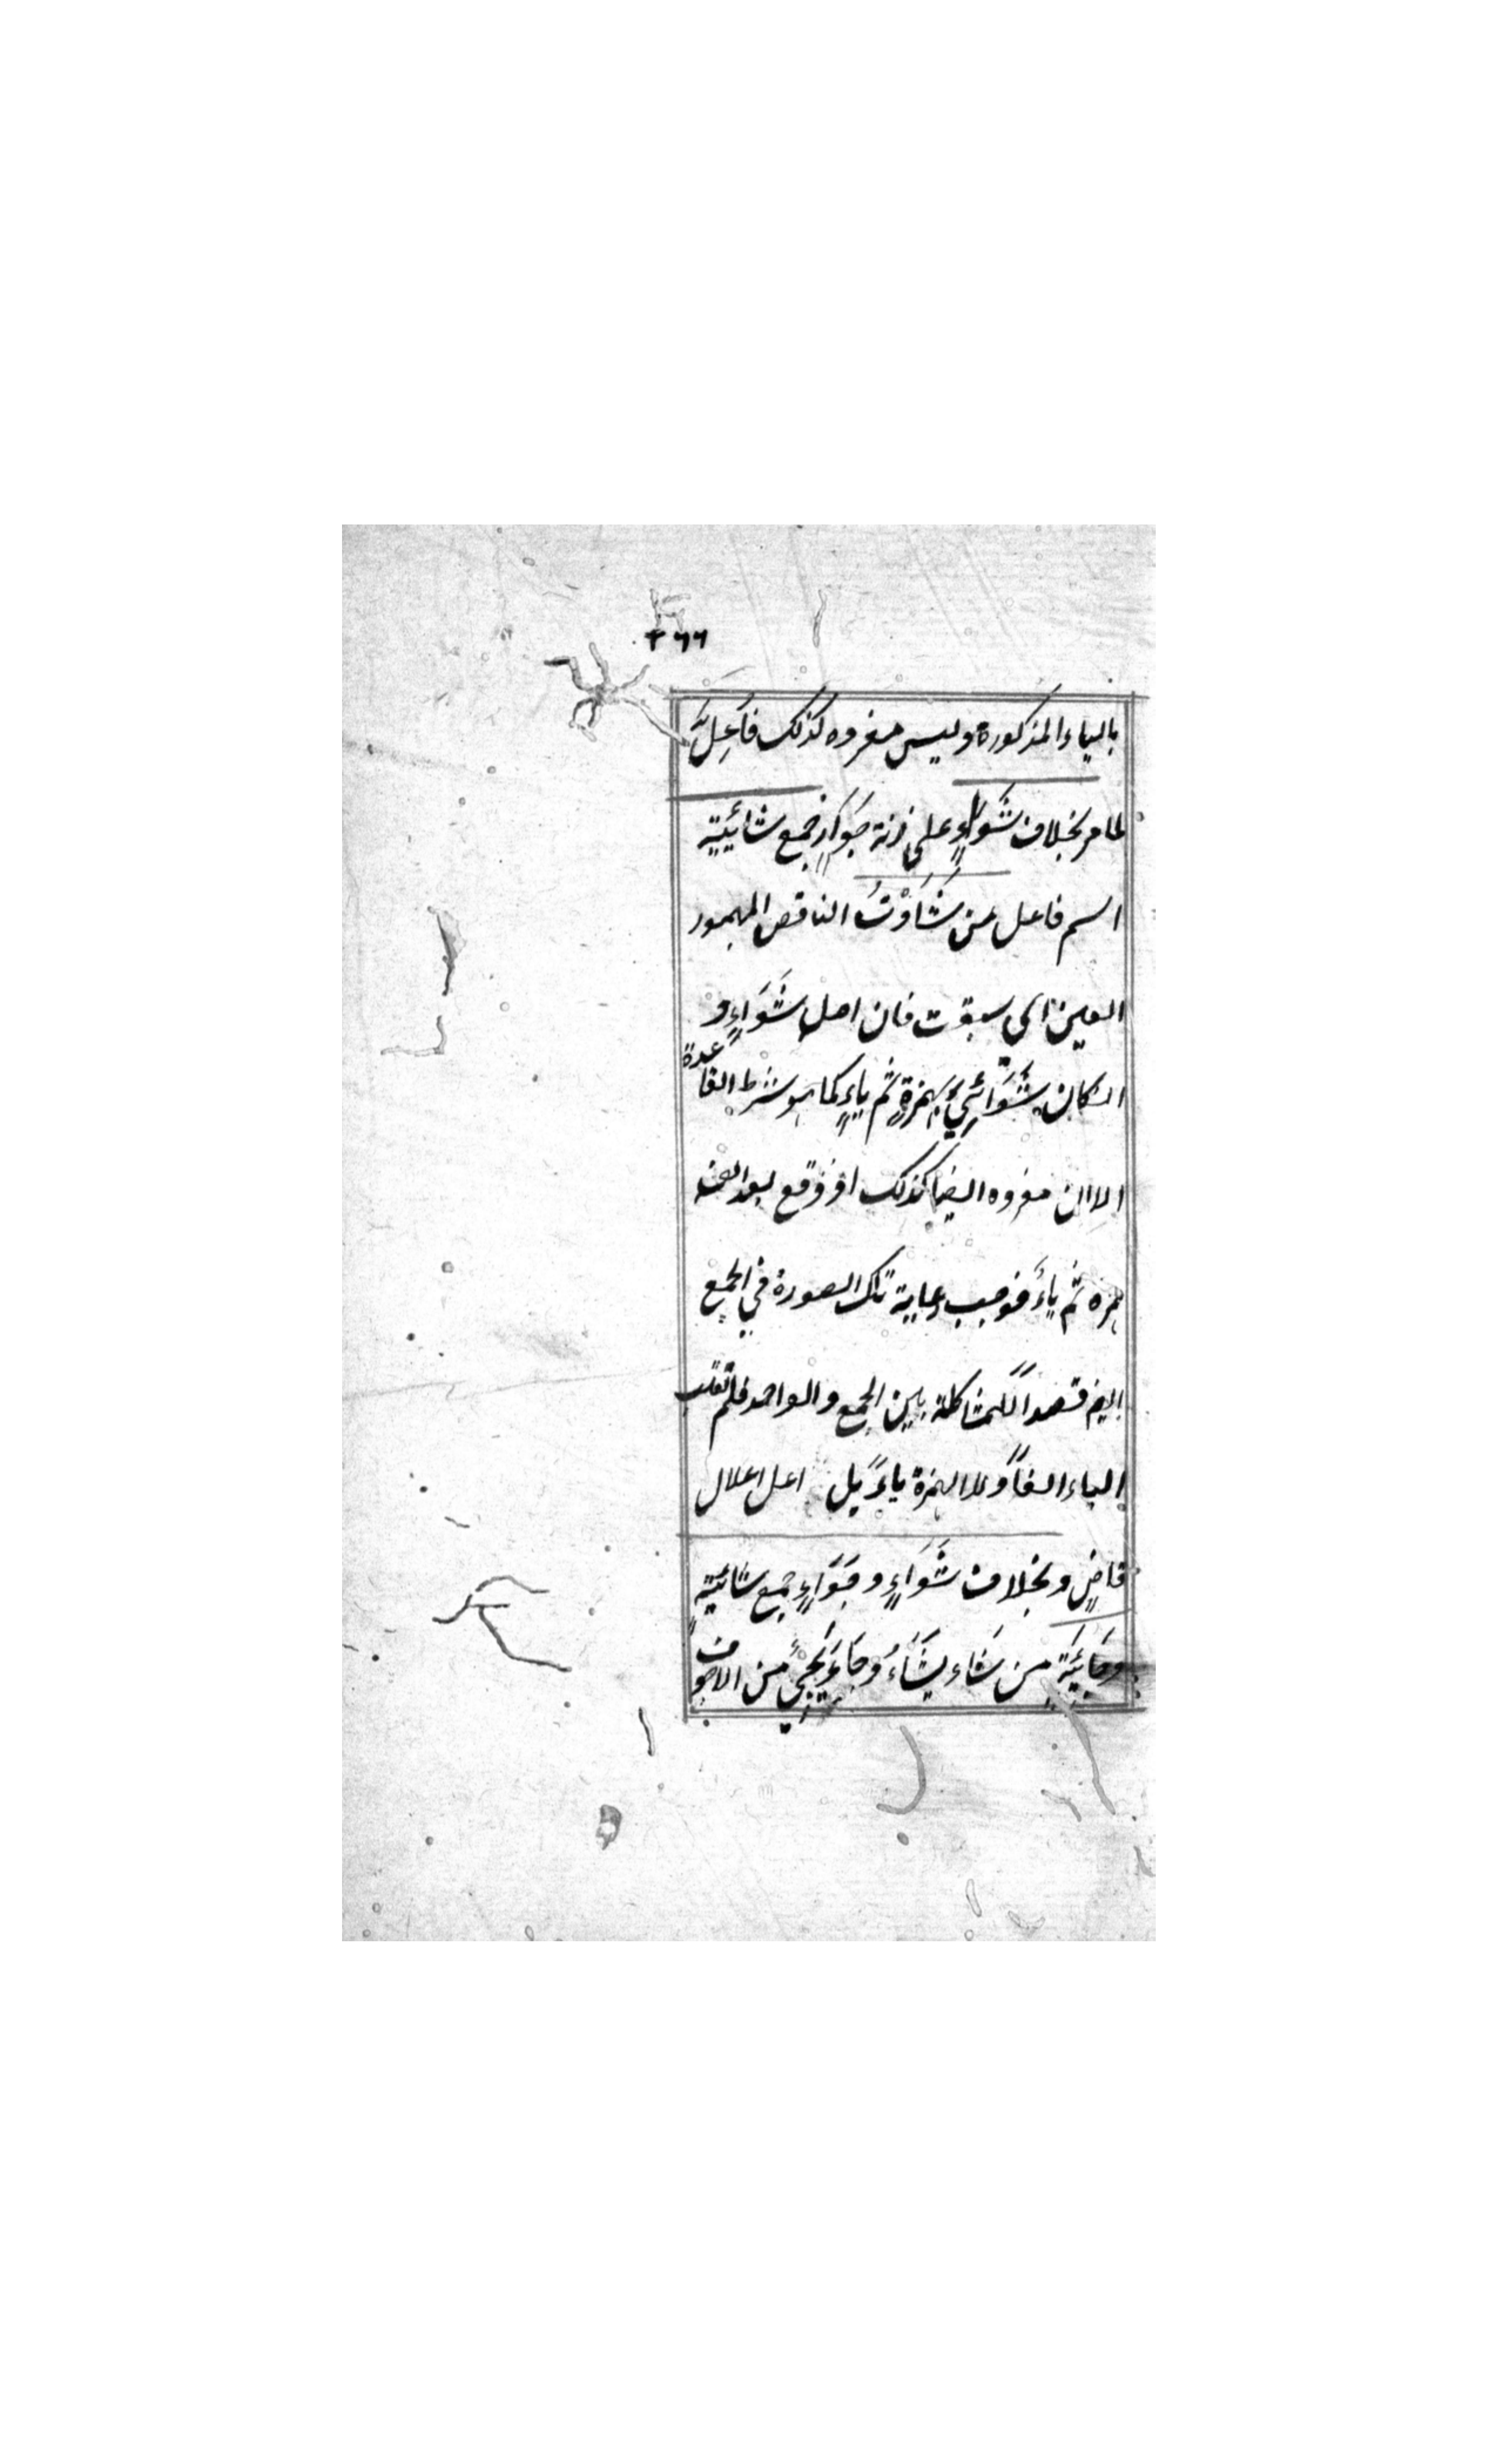 ٢٦٦
بالياء المذكورة وليس مفرده كذلك فاَعِلَّ
لما مر بخلاف شَوَاءٍ على زنة جَوَارٍ جمع شائيةٍ
اسم فاعل من شَأَوْتُ الناقص المهموز
العين التي سبقت فان اصل شَوَاءٍ و
ان كان شَوَائِيُ بهمزةٍ ثم ياءٍ كما هو شرط القاعدة
الا ان مفرده ايضا كذلك اذ وقع بعد الفه
همزه ثم ياءَ فوجب رعاية تلك الصورة في الجمع
ايض قصداً للمشاكلة بين الجمع والواحد فلم تقلب
الياء الفاً ولا الهمزة ياءً بل اعل اعلال
قاضٍ وبخلاف شَوَاءٍ وجَوَاءٍ جمع شائيةٍ
وجَائِيَةٍ من شَاء يشَاءُ وجَاءَ يَجِيُ من الاجوف